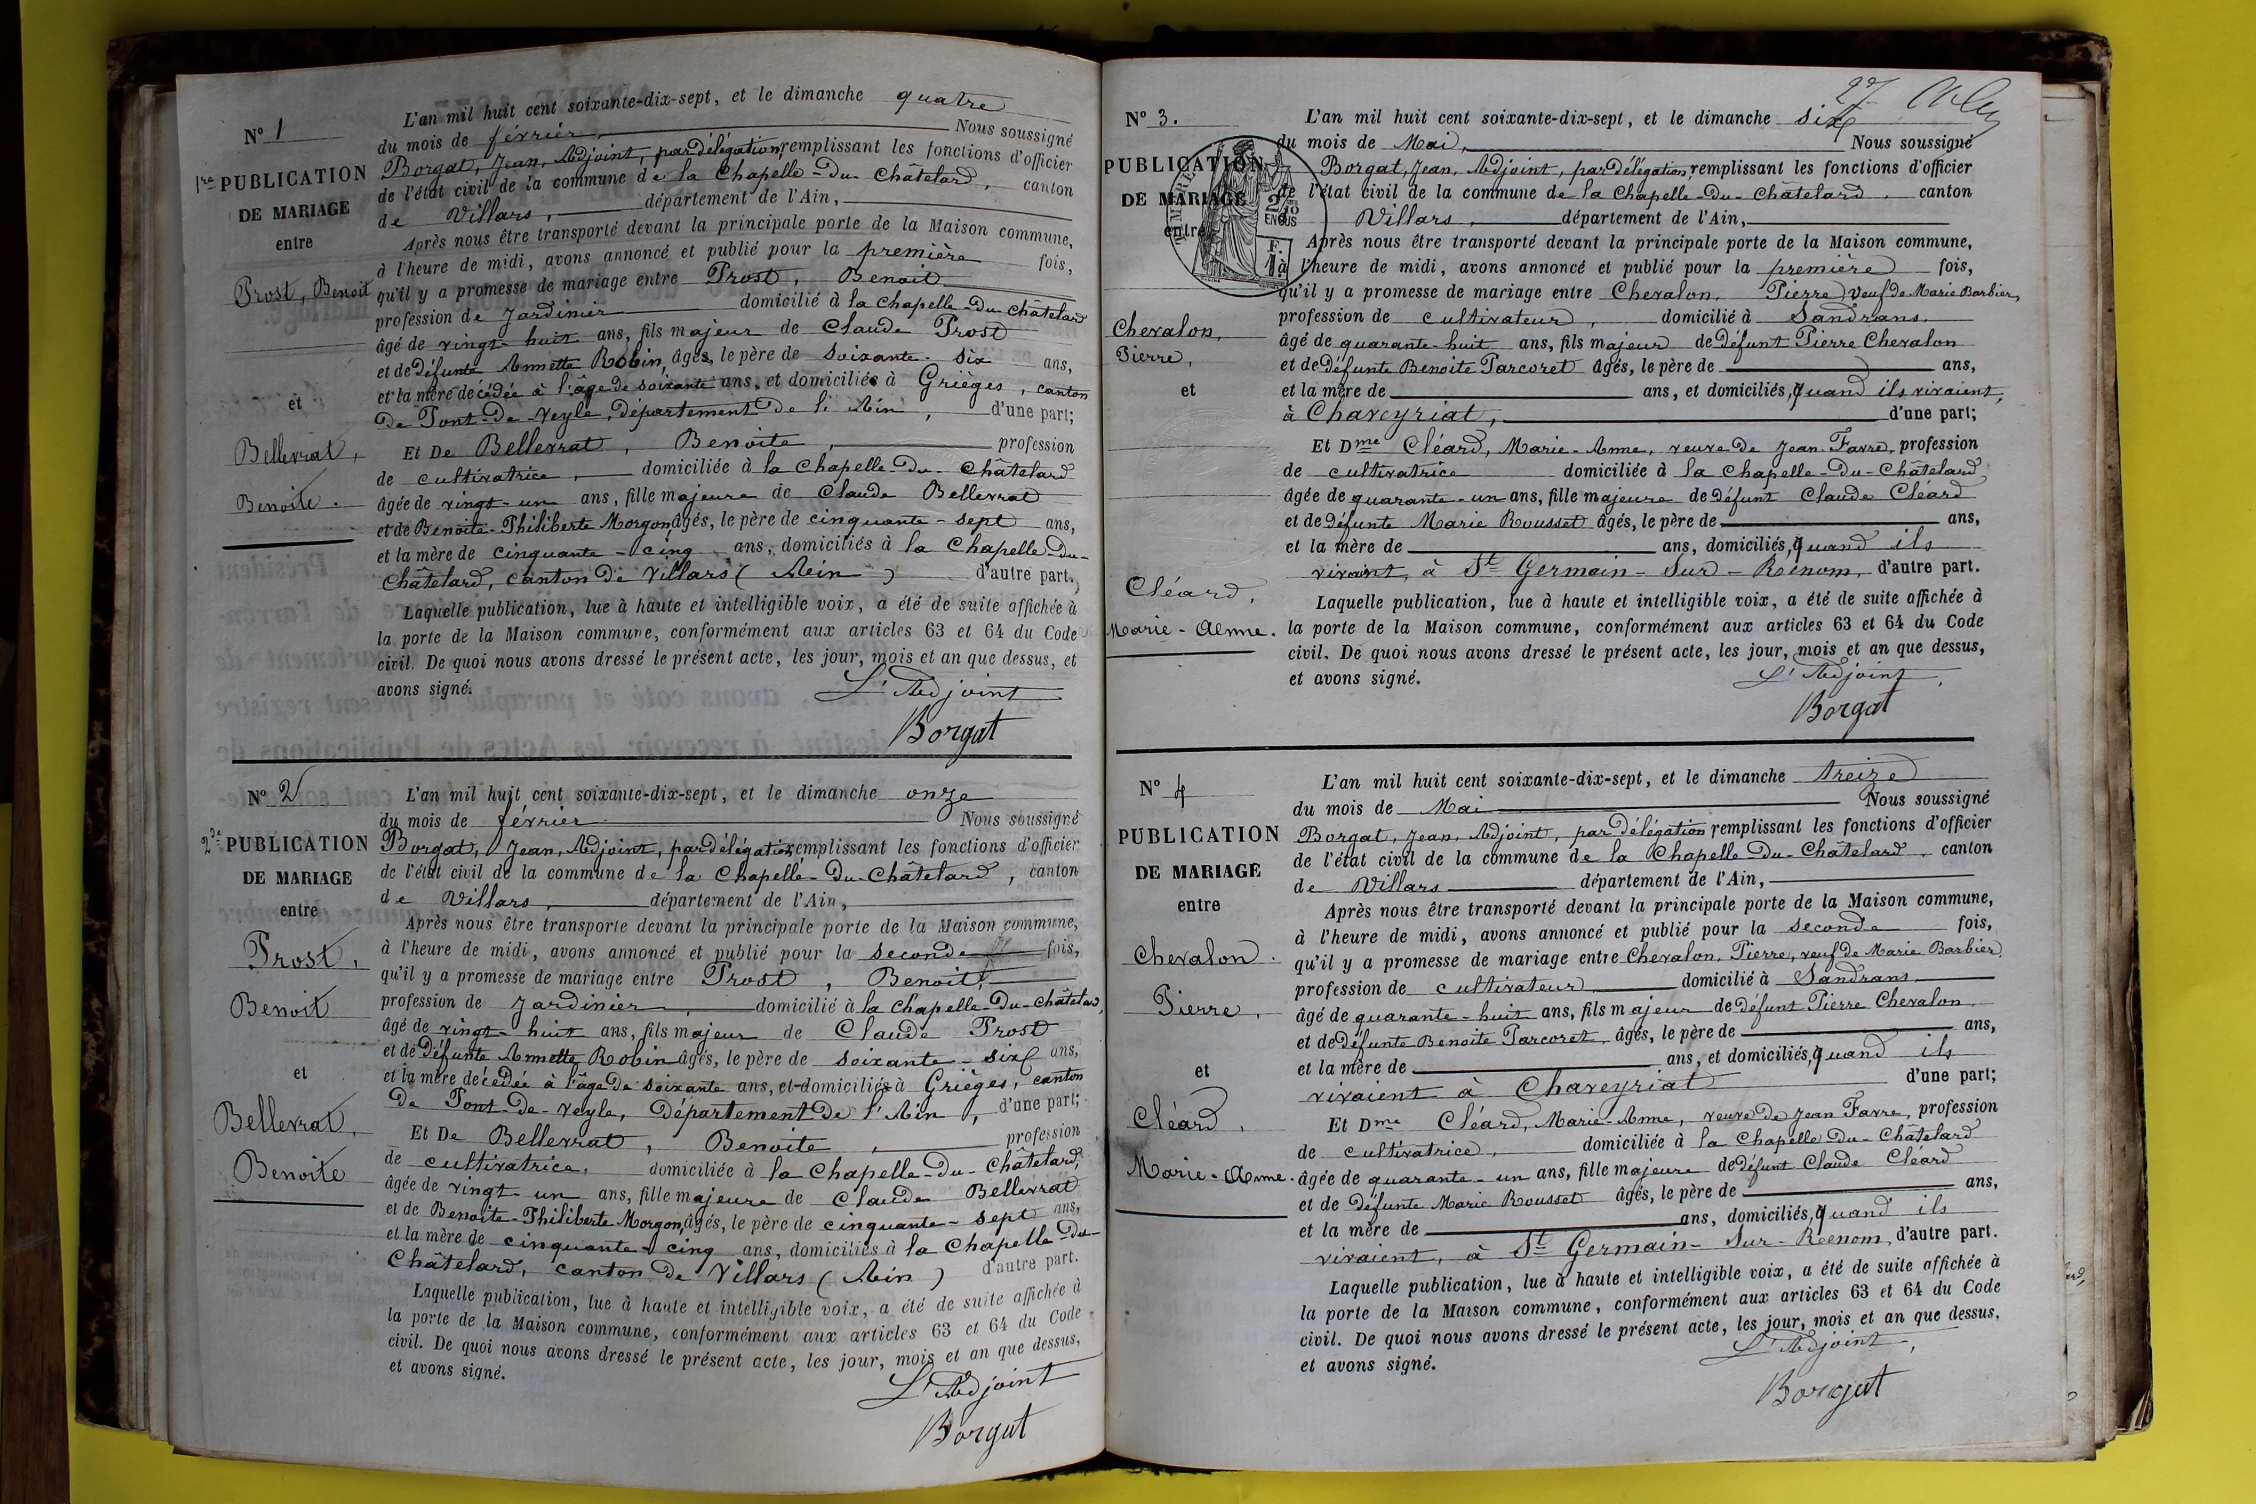 N° 1
1re PUBLICATION
DE MARIAGE
entre
Prost, Benoit
et
Bellevrat,
Benoite.
L'an mil huit cent soixante-dix-sept, et le dimanche quatre
du mois de février, Nous soussigné
Borgat, Jean, Adjoint, par délégation, remplissant les fonctions d'officier
de l'état civil de la commune de la Chapelle-Du-Châtelard, canton
de Villars, département de l'Ain,
Après nous être transporté devant la principale porte de la Maison commune,
à l'heure de midi, avons annoncé et publié pour la première fois,
qu'il y a promesse de mariage entre Prost, Benoit
profession de Jardinier domicilié à la Chapelle-Du-Châtelard
âgé de vingt-huit ans, fils majeur de Claude Prost
et de Défunte Annette Robin, âgés, le père de soixante-six ans,
et la mère décédée à l'age de soixante ans, et domiciliés à Grièges, canton
De Pont-De-Veyle, Département De l'Ain, d'une part;
ET De Bellevrat, Benoite, profession
de cultivatrice, domiciliée à la Chapelle-Du-Châtelard
âgée de vingt-un ans, fille majeure de Claude Bellevrat
et de Benoite-Philiberte Morgon, âgés, le père de cinquante-sept ans,
et la mère de cinquante-cinq ans, domiciliés à la Chapelle-Du-
Châtelard, canton De Villars (Ain) d'autre part.
Laquelle publication, lue à haute et intelligible voix, a été de suite affichée à
la porte de la Maison commune, conformément aux articles 63 et 64 du Code
civil. De quoi nous avons dressé le présent acte, les jour, mois et an que dessus, et
avons signé.
L'Adjoint
Borgat
N° 2
2de PUBLICATION
DE MARIAGE
entre
Prost,
Benoit
et
Bellevrat,
Benoite
L'an mil huit cent soixante-dix-sept, et le dimanche onze
du mois de février Nous soussigné
Borgat, Jean, Adjoint, par délégation, remplissant les fonctions d'officier
de l'état civil de la commune de la Chapelle-Du-Châtelard, canton
de Villars, département de l'Ain,
Après nous être transporté devant la principale porte de la Maison commune,
à l'heure de midi, avons annoncé et publié pour la seconde fois,
qu'il y a promesse de mariage entre Prost, Benoit,
profession de Jardinier, domicilié à la Chapelle-Du-Châtelard,
âgé de vingt-huit ans, fils majeur de Claude Prost
et de Défunte Annette Robin âgés, le père de soixante-six ans,
et la mère décédée à l'âge De soixante ans, et domiciliés à Grièges, canton
De Pont-De-Veyle, Département De l'Ain, d'une part;
ET De Bellevrat, Benoite, profession
de cultivatrice, domiciliée à la Chapelle-Du-Châtelard,
âgée de vingt-un ans, fille majeure de Claude Bellevrat
et de Benoite-Philiberte Morgon, âgés, le père de cinquante-sept ans,
et la mère de cinquante-cinq ans, domiciliés à la Chapelle-Du-
Châtelard, canton De Villars (Ain) d'autre part.
Laquelle publication, lue à haute et intelligible voix, a été de suite affichée à
la porte de la Maison commune, conformément aux articles 63 et 64 du Code
civil. De quoi nous avons dressé le présent acte, les jour, mois et an que dessus,
et avons signé.
L'Adjoint
Borgat
27
N° 3.
PUBLICATION
DE MARIAGE
entre
2/10
EN SUS
F.
1
Chevalon,
Pierre,
et
Cléard,
Marie-Anne.
L'an mil huit cent soixante-dix-sept, et le dimanche six
du mois de Mai, Nous soussigné
Borgat, Jean, Adjoint, par délégation, remplissant les fonctions d'officier
de l'état civil de la commune de la Chapelle-Du-Châtelard, canton
de Villars, département de l'Ain,
Après nous être transporté devant la principale porte de la Maison commune,
à l'heure de midi, avons annoncé et publié pour la première fois,
qu'il y a promesse de mariage entre Chevalon, Pierre, Veuf de Marie Barbier,
profession de cultivateur, domicilié à Sandrans.
âgé de quarante-huit ans, fils majeur de Défunt Pierre Chevalon
et de Défunte Benoite Parcoret âgés, le père de ans,
et la mère de ans, et domiciliés, quand ils vivaient,
à Chaveyriat, d'une part;
ET Dme Cléard, Marie-Anne, veuve De Jean Favre, profession
de cultivatrice domiciliée à la Chapelle-Du-Châtelard
âgée de quarante-un ans, fille majeure de Défunt Claude Cléard
et de Défunte Marie Rousset âgés, le père de ans,
et la mère de ans, domiciliés, quand ils
vivaient, à St Germain-Sur-Renom, d'autre part.
Laquelle publication, lue à haute et intelligible voix, a été de suite affichée à
la porte de la Maison commune, conformément aux articles 63 et 64 du Code
civil. De quoi nous avons dressé le présent acte, les jour, mois et an que dessus,
et avons signé.
L'Adjoint,
Borgat
N° 4
PUBLICATION
DE MARIAGE
entre
Chevalon.
Pierre,
et
Cléard,
Marie-Anne.
L'an mil huit cent soixante-dix-sept, et le dimanche treize
du mois de Mai Nous soussigné
Borgat, Jean, Adjoint, par délégation remplissant les fonctions d'officier
de l'état civil de la commune de la Chapelle-Du-Châtelard, canton
de Villars département de l'Ain,
Après nous être transporté devant la principale porte de la Maison commune,
à l'heure de midi, avons annoncé et publié pour la seconde fois,
qu'il y a promesse de mariage entre Chevalon, Pierre, veuf de Marie Barbier,
profession de cultivateur, domicilié à Sandrans,
âgé de quarante-huit ans, fils majeur de Défunt Pierre Chevalon
et de Défunte Benoite Parcoret, âgés, le père de ans,
et la mère de ans, et domiciliés, quand ils
vivaient à Chaveyriat d'une part;
ET Dme Cléard, Marie-Anne, veuve De Jean Favre, profession
de cultivatrice, domiciliée à la Chapelle Du-Châtelard
âgée de quarante-un ans, fille majeure de défunt Claude Cléard
et de Défunte Marie Rousset âgés, le père de ans,
et la mère de ans, domiciliés, quand ils
vivaient, à St Germain-Sur-Renom, d'autre part.
Laquelle publication, lue à haute et intelligible voix, a été de suite affichée à
la porte de la Maison commune, conformément aux articles 63 et 64 du Code
civil. De quoi nous avons dressé le présent acte, les jour, mois et an que dessus,
et avons signé.
L'Adjoint,
Borgat